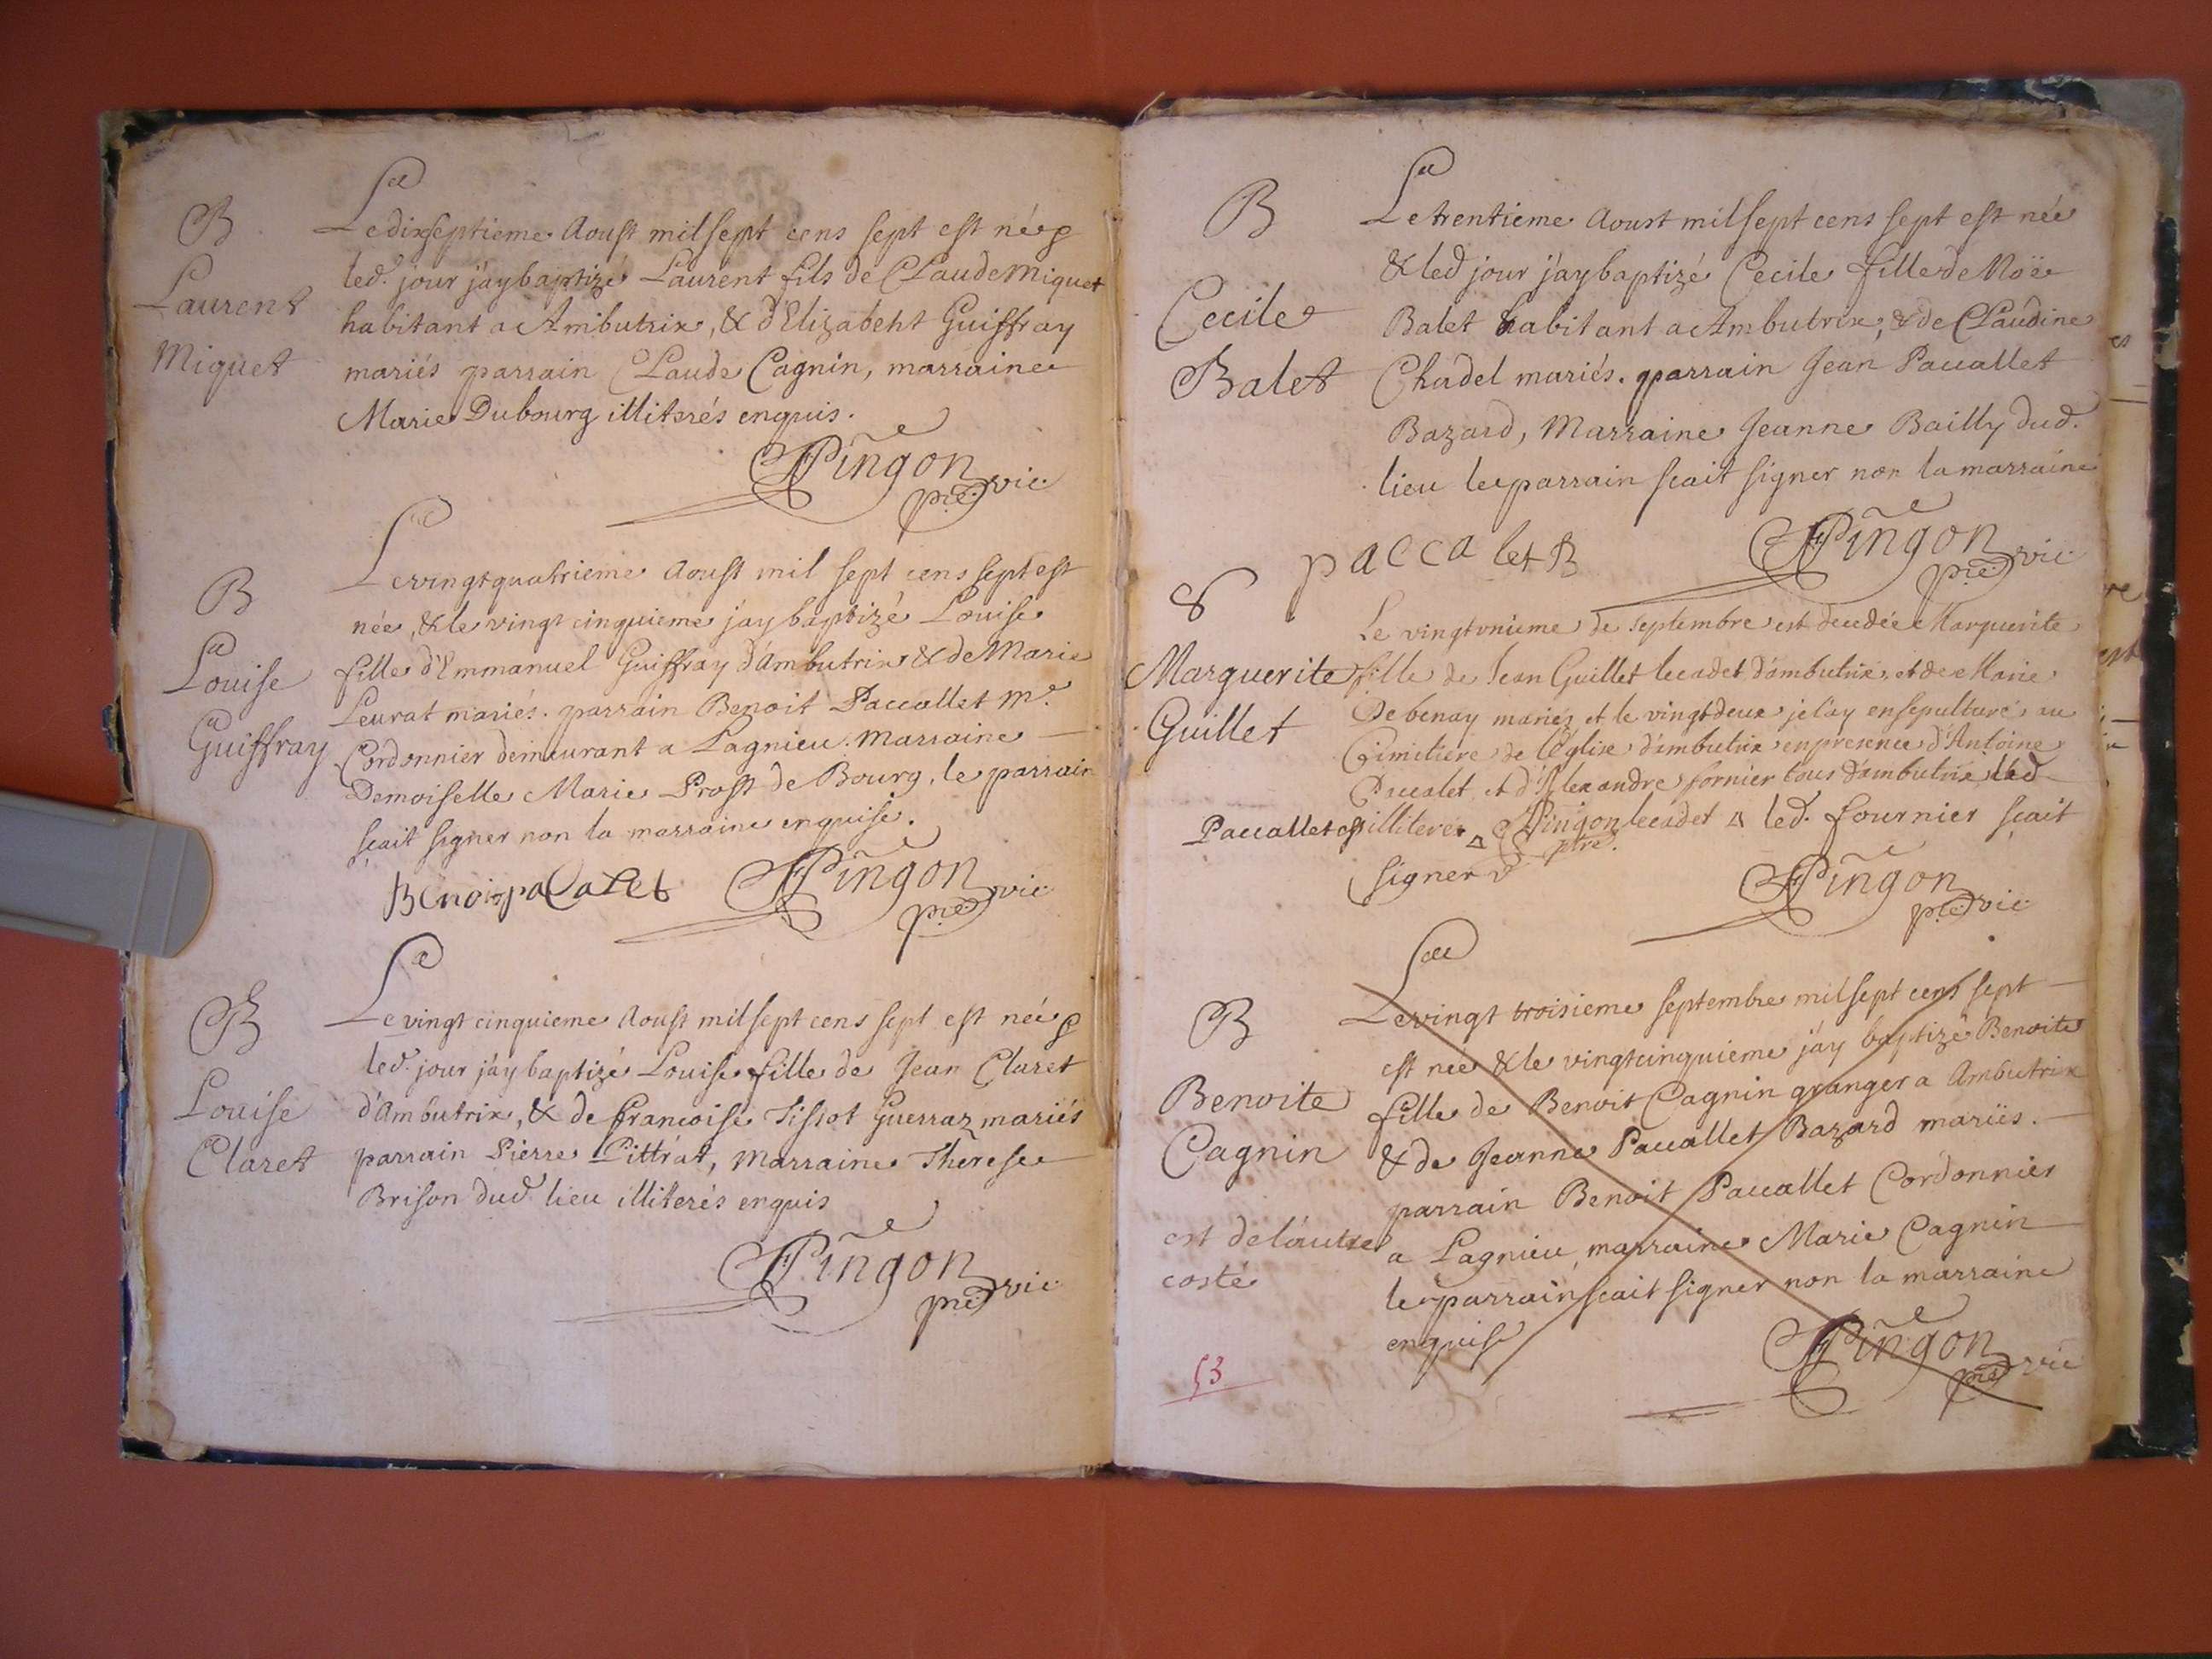 B
Laurent
Miquet
Le dixseptieme Aoust mil sept cens sept est né &
led. jour j'ay baptizé Laurent fils de Claude Miquet
habitant a Ambutrix, & d'Elizabeht Guiffray
mariés parrain Claude Cagnin, marraine
Marie Dubourg illiterés enquis.
Pingon
pre vic
B
Louise
Guiffray
Le vingt quatrieme Aoust mil sept cens sept est
née, & le vingt cinquieme j'ay baptizé Louise
fille d'Emmanuel Guiffray d'Ambutrix & de Marie
Leurat mariés. parrain Benoit Paccallet Me.
Cordonnier demeurant a Lagnieu. Marraine
Demoiselle Marie Prost de Bourg, le parrain
sçait signer non la marraine enquise.
Benoi paCalet Pingon
pre vic
B
Louise
Claret
Le vingt cinquieme Aoust mil sept cens sept est née &
led. jour j'ay baptizé Louise fille de Jean Claret
d'Ambutrix, & de francoise Tissot Guerraz mariés
parrain Pierre Pittrat, Marraine Therese
Brison dud. lieu illiterés enquis
Pingon
pre vic
B
Cecile
Balet
Le trentieme Aoust mil sept cens sept est née
& led jour j'ay baptizé Cecile fille de Noëe
Balet habitant a Ambutrix, & de Claudine
Chadel mariés. parrain Jean Paccallet
Bazard, Marraine Jeanne Bailly dud.
lieu le parrain scait signer non la marraine
paccalet B Pingon
pre vic
Marguerite
Guillet
Le vingt unieme de septembre est decedée Marguerite
fille de Jean Guillet le cadet d'ambutrix, et de Marie
Debenay mariez et le vingt deux je l'ay ensepulturé au
Cimetiere de l'Eglise d'ambutrix en presence d'Antoine
Paccalet et d'Alexandre fornier tous d'ambutrix led
Paccallet est illiteré Pingon le cadet led. fournier sçait
ptre.
signer
Pingon
pre vic
B
Benoite
Cagnin
est de l'autre
costé
Le vingt troisieme septembre mil sept cens sept
est née & le vingt cinquieme j'ay baptizé Benoite
fille de Benoit Cagnin granger a Ambutrix
& de Jeanne Paccallet Bazard mariés.
parrain Benoit Paccallet Cordonnier
a Lagnieu, marraine Marie Cagnin
le parrain scait signer non la marraine
enquise
Pingon
pre vic
53